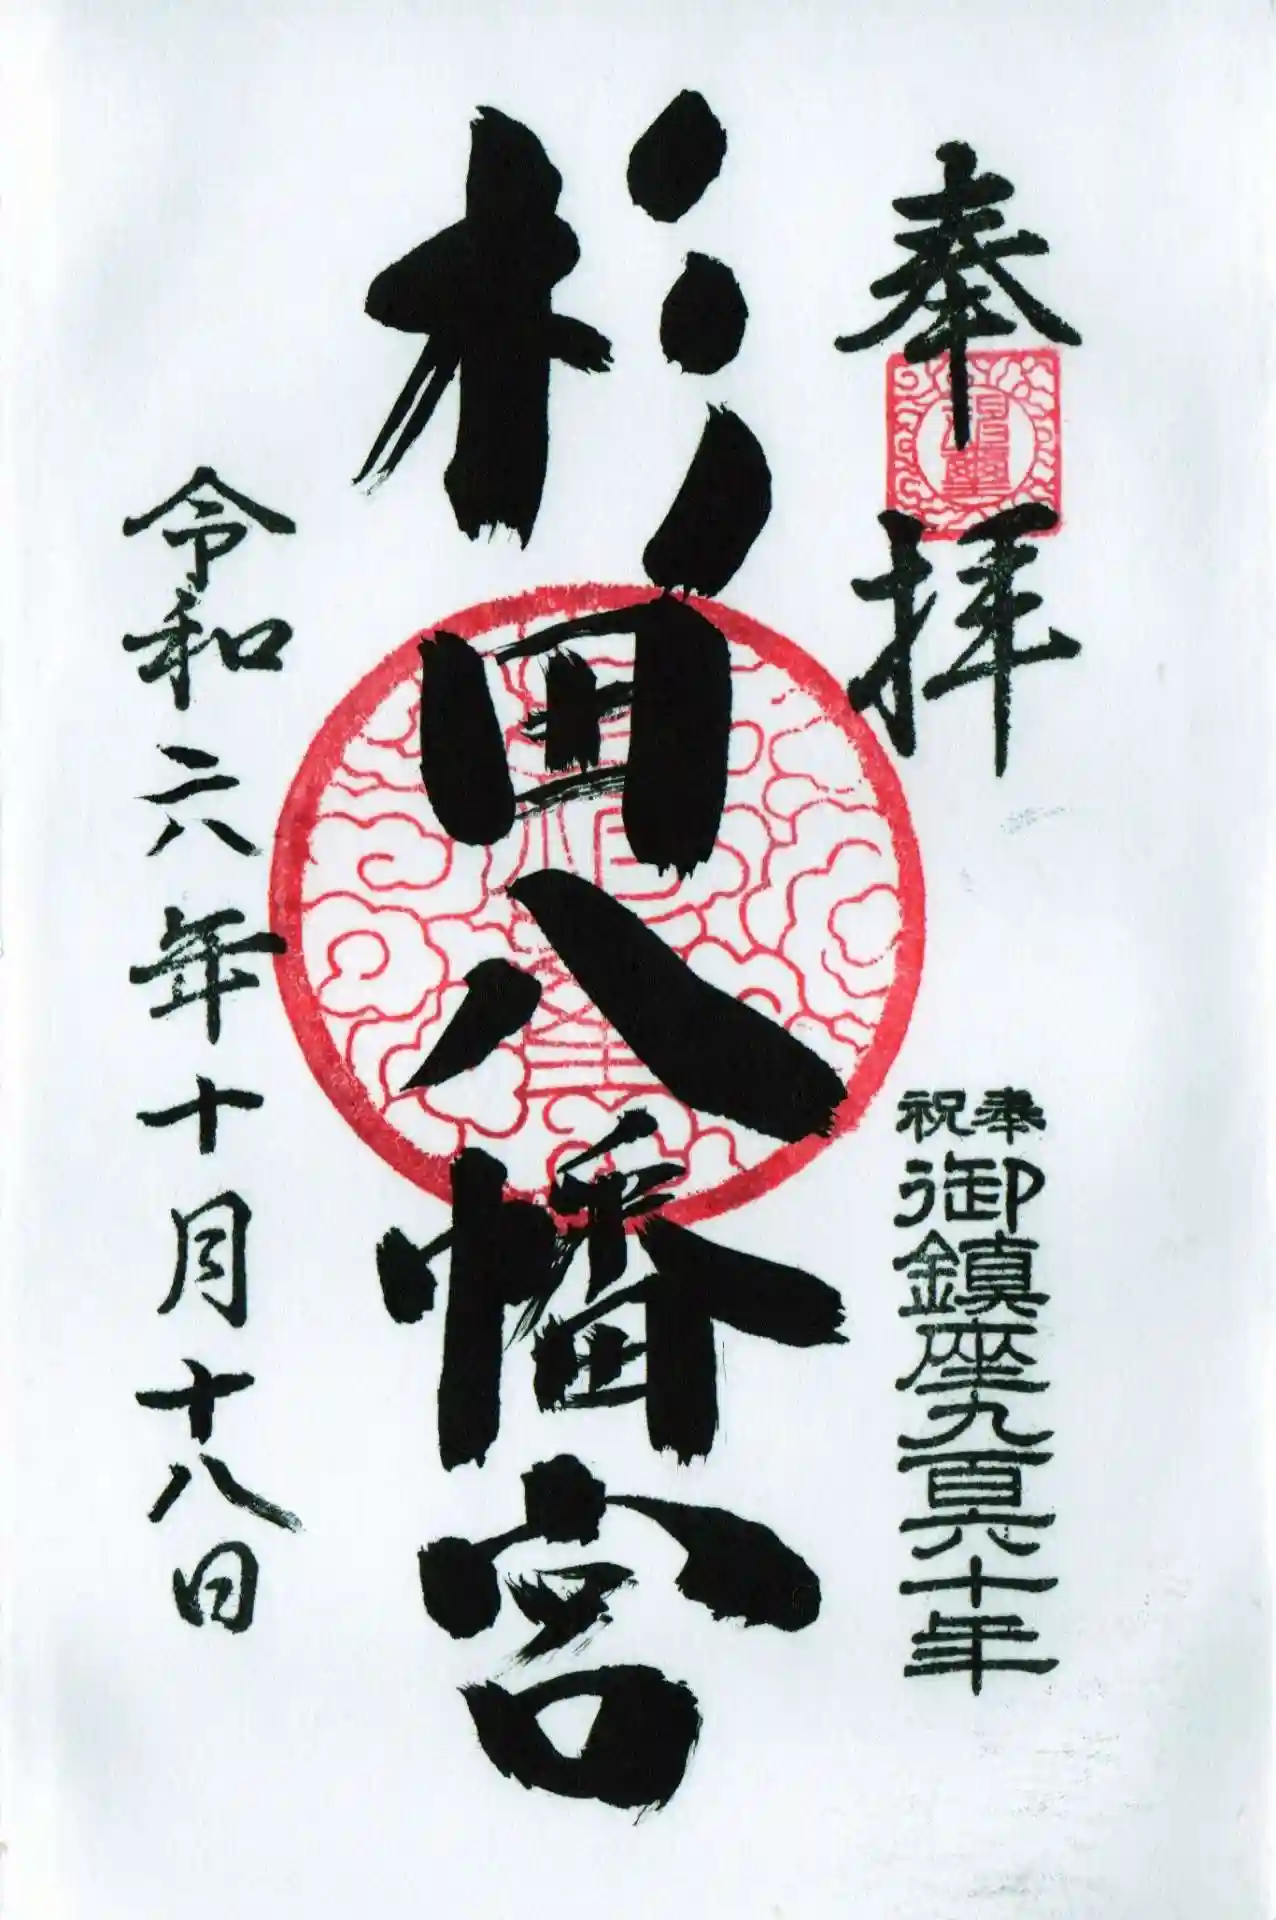 奉拝
奉祝
御鎮座九百六十年
杉田八幡宮
令和六年十月十八日